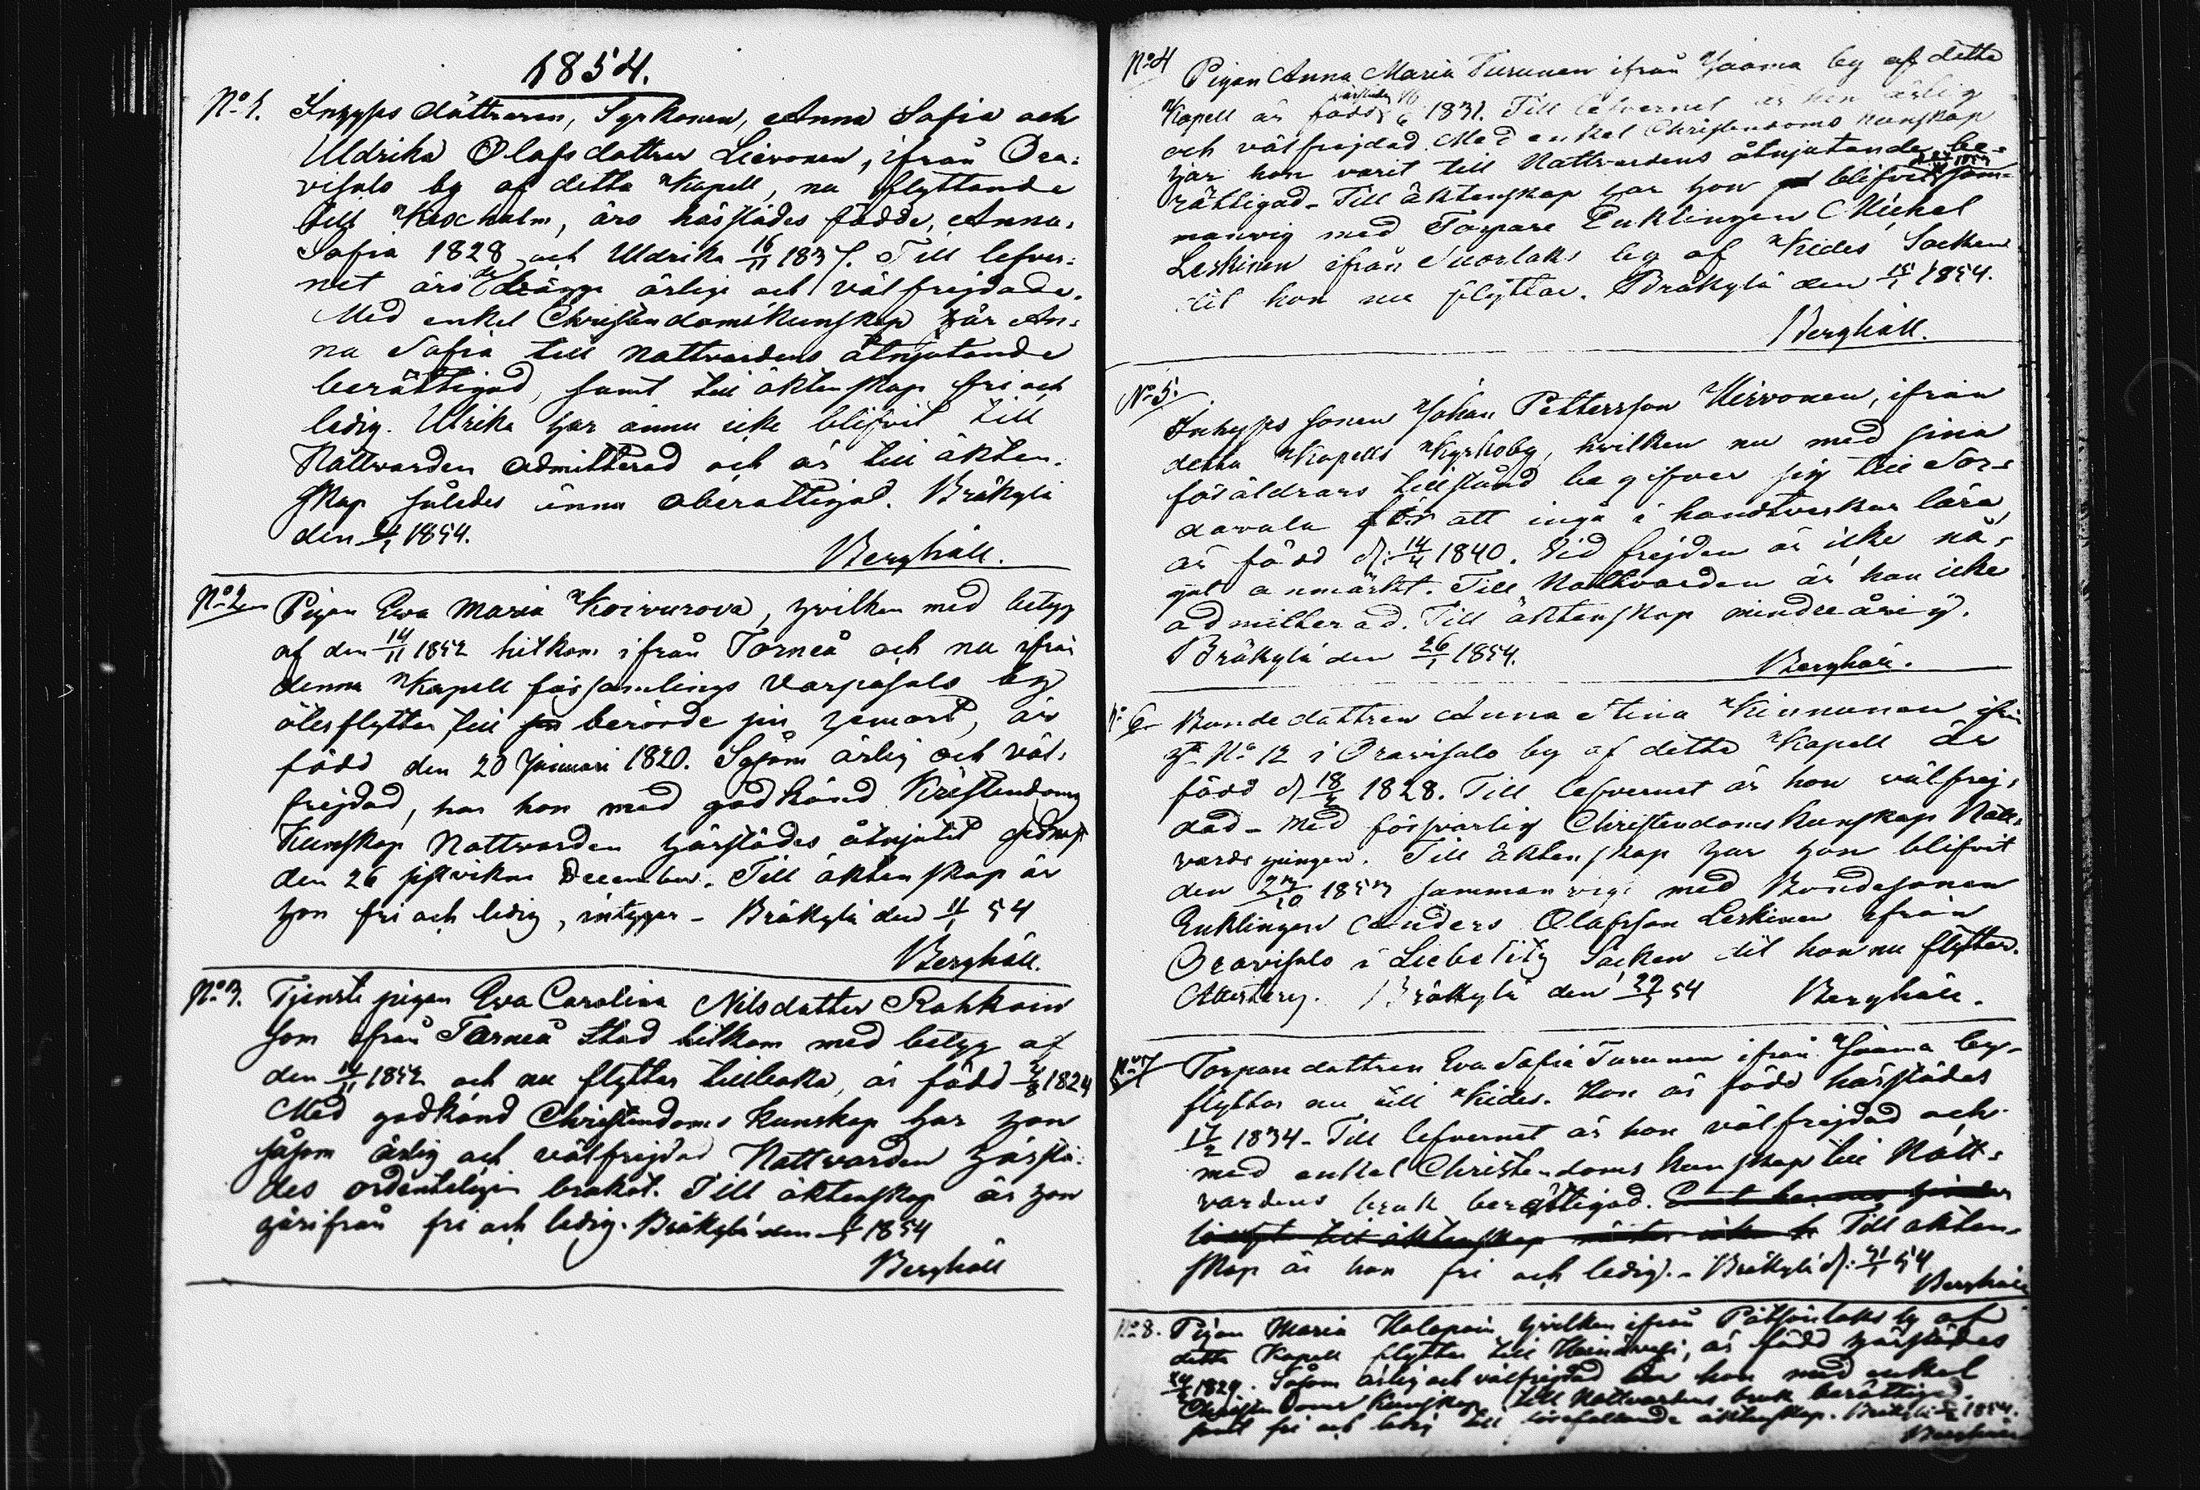 1854.
No 1. Inhyses döttraren, Syrkonen, Anna Sofia och
Uldrika Olafsdottrar Lievonen, ifrån Ora-
visalo by af detta Kapell, nu flyttande
till Kexholm, äro härstädes födde, Anna
Sofia 1828 och Uldrika 16/11 1837. Till lefver-
net äro de ärlige och välfrejdade.
Med enkel Christendomskunskap är An-
na Sofia till nattvardens åtnjutande
berättigad, samt till äktenskap fri och
ledig. Ulrika har ännu icke blifvit till
Nattvarden admitterad och är till äkten-
skap således ännu oberättigad. Bräkylä
den 1854.
Berghäll.
No 2 Pigan Eva Maria Koivurova, hvilken med betyg
af den 14/11 1852 hitkom ifrån Torneå och nu ifrån
denna Kapell församlings Varpasalo by
återflyttar till berörde sin hemort, är
född den 20 Januari 1820. Såsom ärlig och väl-
frejdad, har hon med godkänd Kristendoms
Kunskap Nattvarden härstädes åtnjutit sednast
den 26 sistvikne December. Till äktenskap är
hon fri och ledig, intygar - Bräkylä den 54
Berghäll.
No 3. Tjenste pigan Eva Carolina Nilsdotter Rahkoin
som ifrån Torneå Stad hitkom med betyg af
den 14/11 1852 och nu flyttar tillbaka, är född 1824
Med godkänd Christendoms kunskap har hon
såsom ärlig och välfrejdad Nattvarden härstä-
des ordenteligen brukat. Till äktenskap är hon
härifrån fri och ledig. Bräkylä den 1854
Berghäll
No 4 Pigan Anna Maria Turunen ifrån Jaama by af detta
Kapell är född härstädes 1831. Till lefvernet är hon ärlig
och välfrejdad. Med enkel Christendoms kunskap
har hon varit till Nattvardens åtnjutande be-
rättigad. Till äktenskap har hon blifvit sam-
manvig med Torpare Enklingen Michel
Leskinen ifrån Suorlaks by af Kides Socken
dit hon nu flyttar. Bräkylä den 15/1 1854.
Berghäll.
No 5. Inhyses sonen Johan Pettersson Hirvonen, ifrån
detta Kapells Kyrkoby, hvilken nu med sina
föräldrars tillstånd begifver sig till Sor-
davala för att ingå i handtverkar lära,
är född d. 14/4 1840. Vid frejden är icke nå-
got anmärkt. Till Nattvarden är han icke
admitterad. Till äktenskap minderårig.
Bräkylä den 26/1 1854.
Berghäll.
No 6 Bondedottren Anna Stina Kinnunen ifrån
No 12 i Oravisalo by af detta Kapell är
född d 18/5 1828. Till lefvernet är hon välfrej-
dad - Med försvarlig Christendoms kunskap Natt-
vards gången. Till äktenskap har hon blifvit
den 23/10 1853 sammanvigd med Bondesonen
Enklingen Anders Olafsson Leskinen ifrån
Oravisalo i Liebelitz Socken dit hon nu flyttar.
Attesterar. Bräkylä den 29/1 54 Berghäll.
No 7 Torparedottren Eva Sofia Turunen ifrån Jaama by
flyttar nu till Kides. Hon är född härstädes
17/2 1834 - Till lefvernet är hon välfrejdad och
med enkel Christendoms kunskap till Natt-
vardens bruk berättigad.
till äktenskap Till äkten-
skap är hon fri och ledig. - Bräkylä d. 31/1 54
Berghäll
No 8. Pigan Maria Halapain hvilken ifrån Pötsönlaks by af
detta Kapell flyttar till Heinävesi, är född härstädes
1829. Såsom ärlig och välfrejdad är hon med enkel
Christendoms Kunskap till Nattvardens bruk berättigad
samt fri och ledig till förefallande äktenskap. Bräkylä 1854.
Berghäll